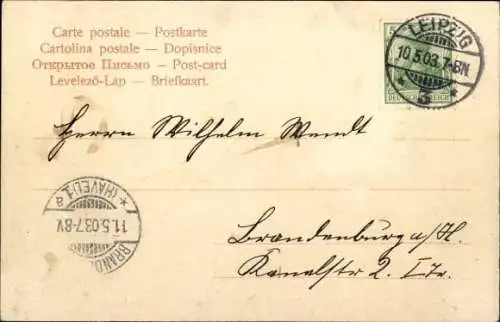 Carte postale — Postkarte
Cartolina postale — Dopisnice
Открытое Письмо — Post-card
Levelező-Lap — Briefkaart.
LEIPZIG
10.5.03.7-8N
* 3 *
DEUTSCHES REICH
Herrn Wilhelm Wendt
BRAND (HAVEL) 1
* a
11.5.03.7-8V
Brandenburg a/H.
Kanalstr 2. I Tr.